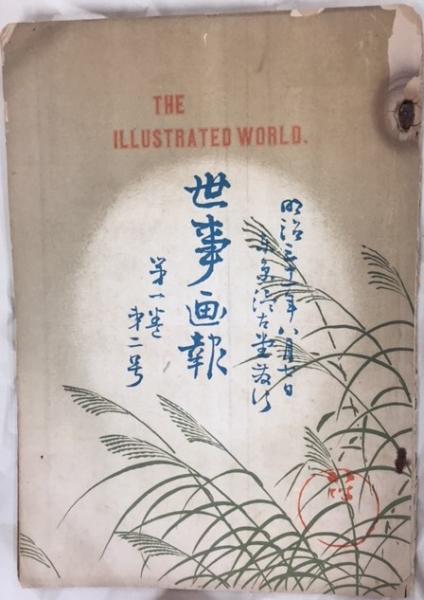 THE
ILLUSTRATED WORLD.
明治三十一年八月十日
東京古堂発行
世事画報
第一巻
第二号